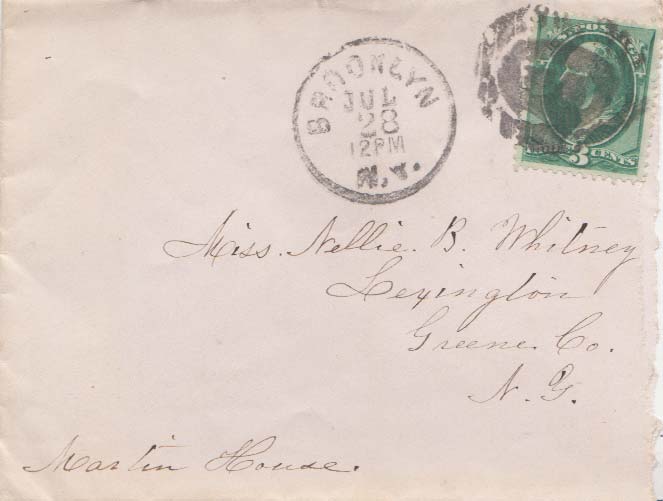 BROOKLYN
JUL
28
12PM
N.Y.
3 CENTS
Miss. Nellie. B. Whitney
Lexington
Greene. Co.
N. Y.
Martin House.